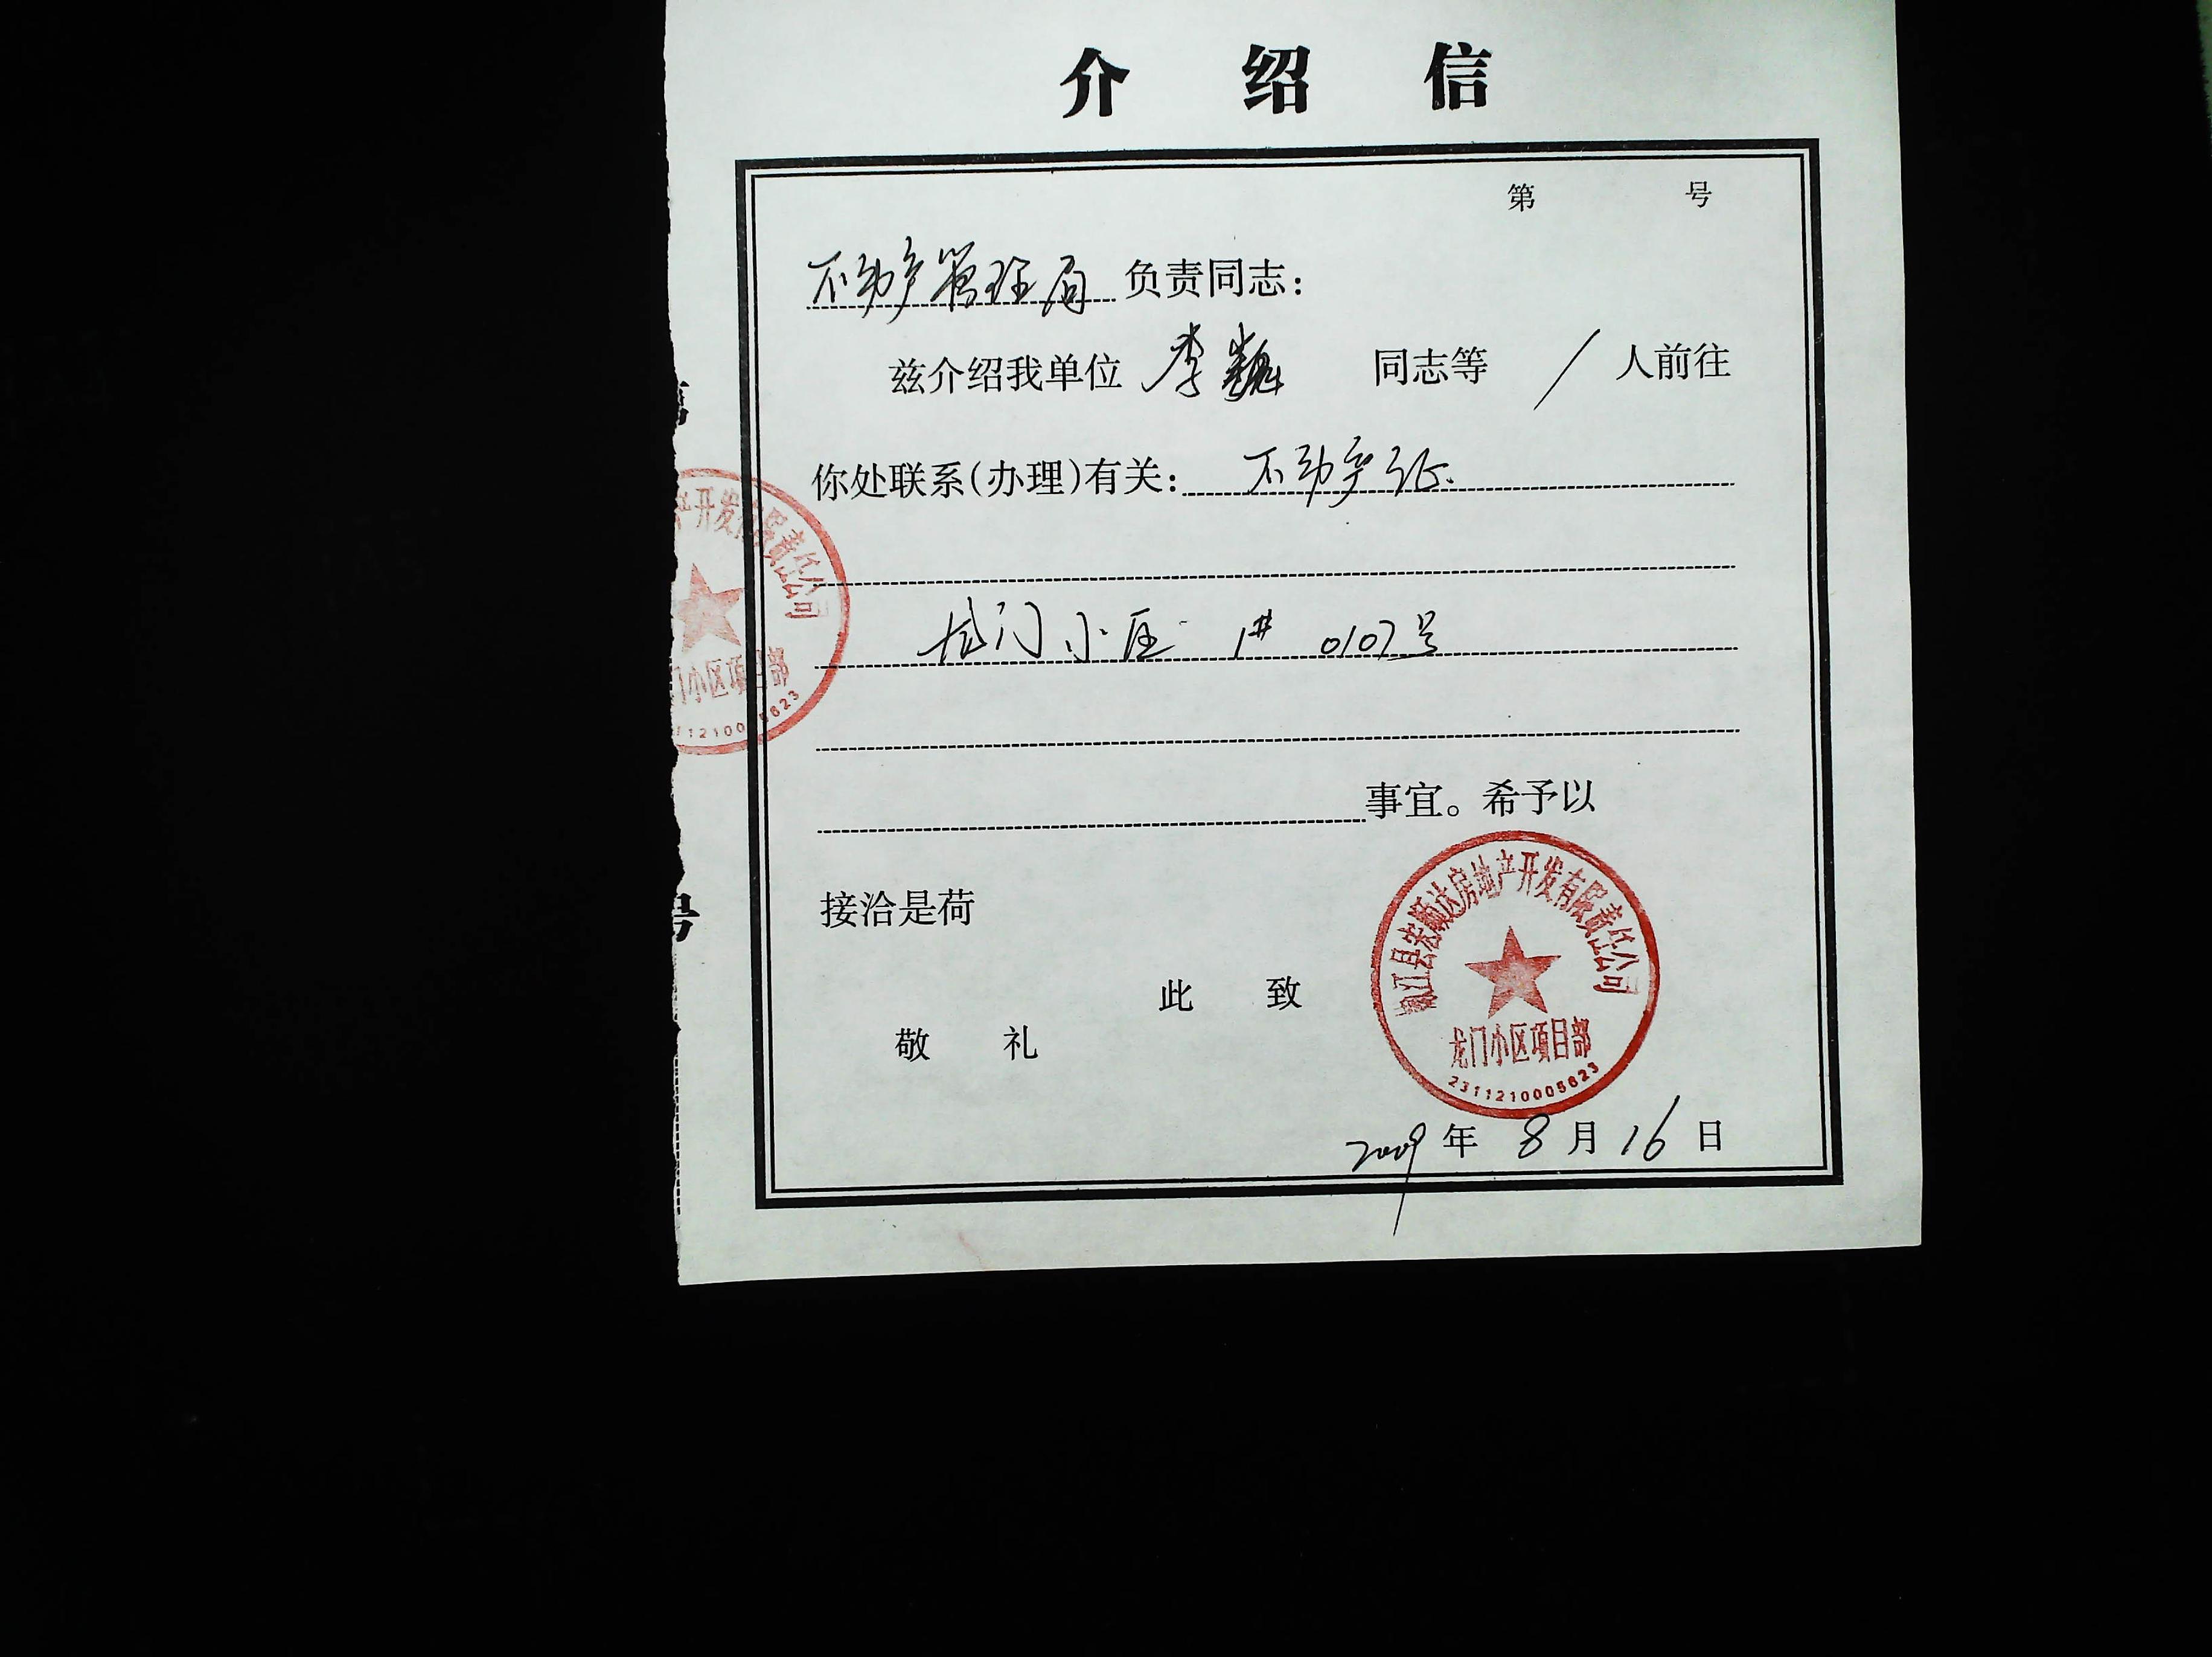 介绍信
第 号
不动产管理局 负责同志：
兹介绍我单位 李巍 同志等 / 人前往
你处联系(办理)有关： 不动产证
龙门小区 1# 0107号
事宜。希予以
接洽是荷
此致
敬礼
2009年8月16日
产开发有限责任公司
门小区项目部
嫩江县宏顺达房地产开发有限责任公司
龙门小区项目部
2311210005623
号